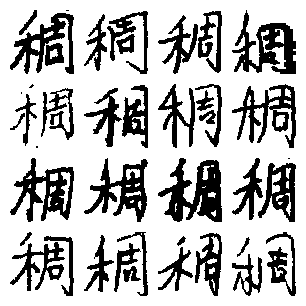 稠稠稠稠
稠稠稠稠
稠稠稠稠
稠稠稠稠